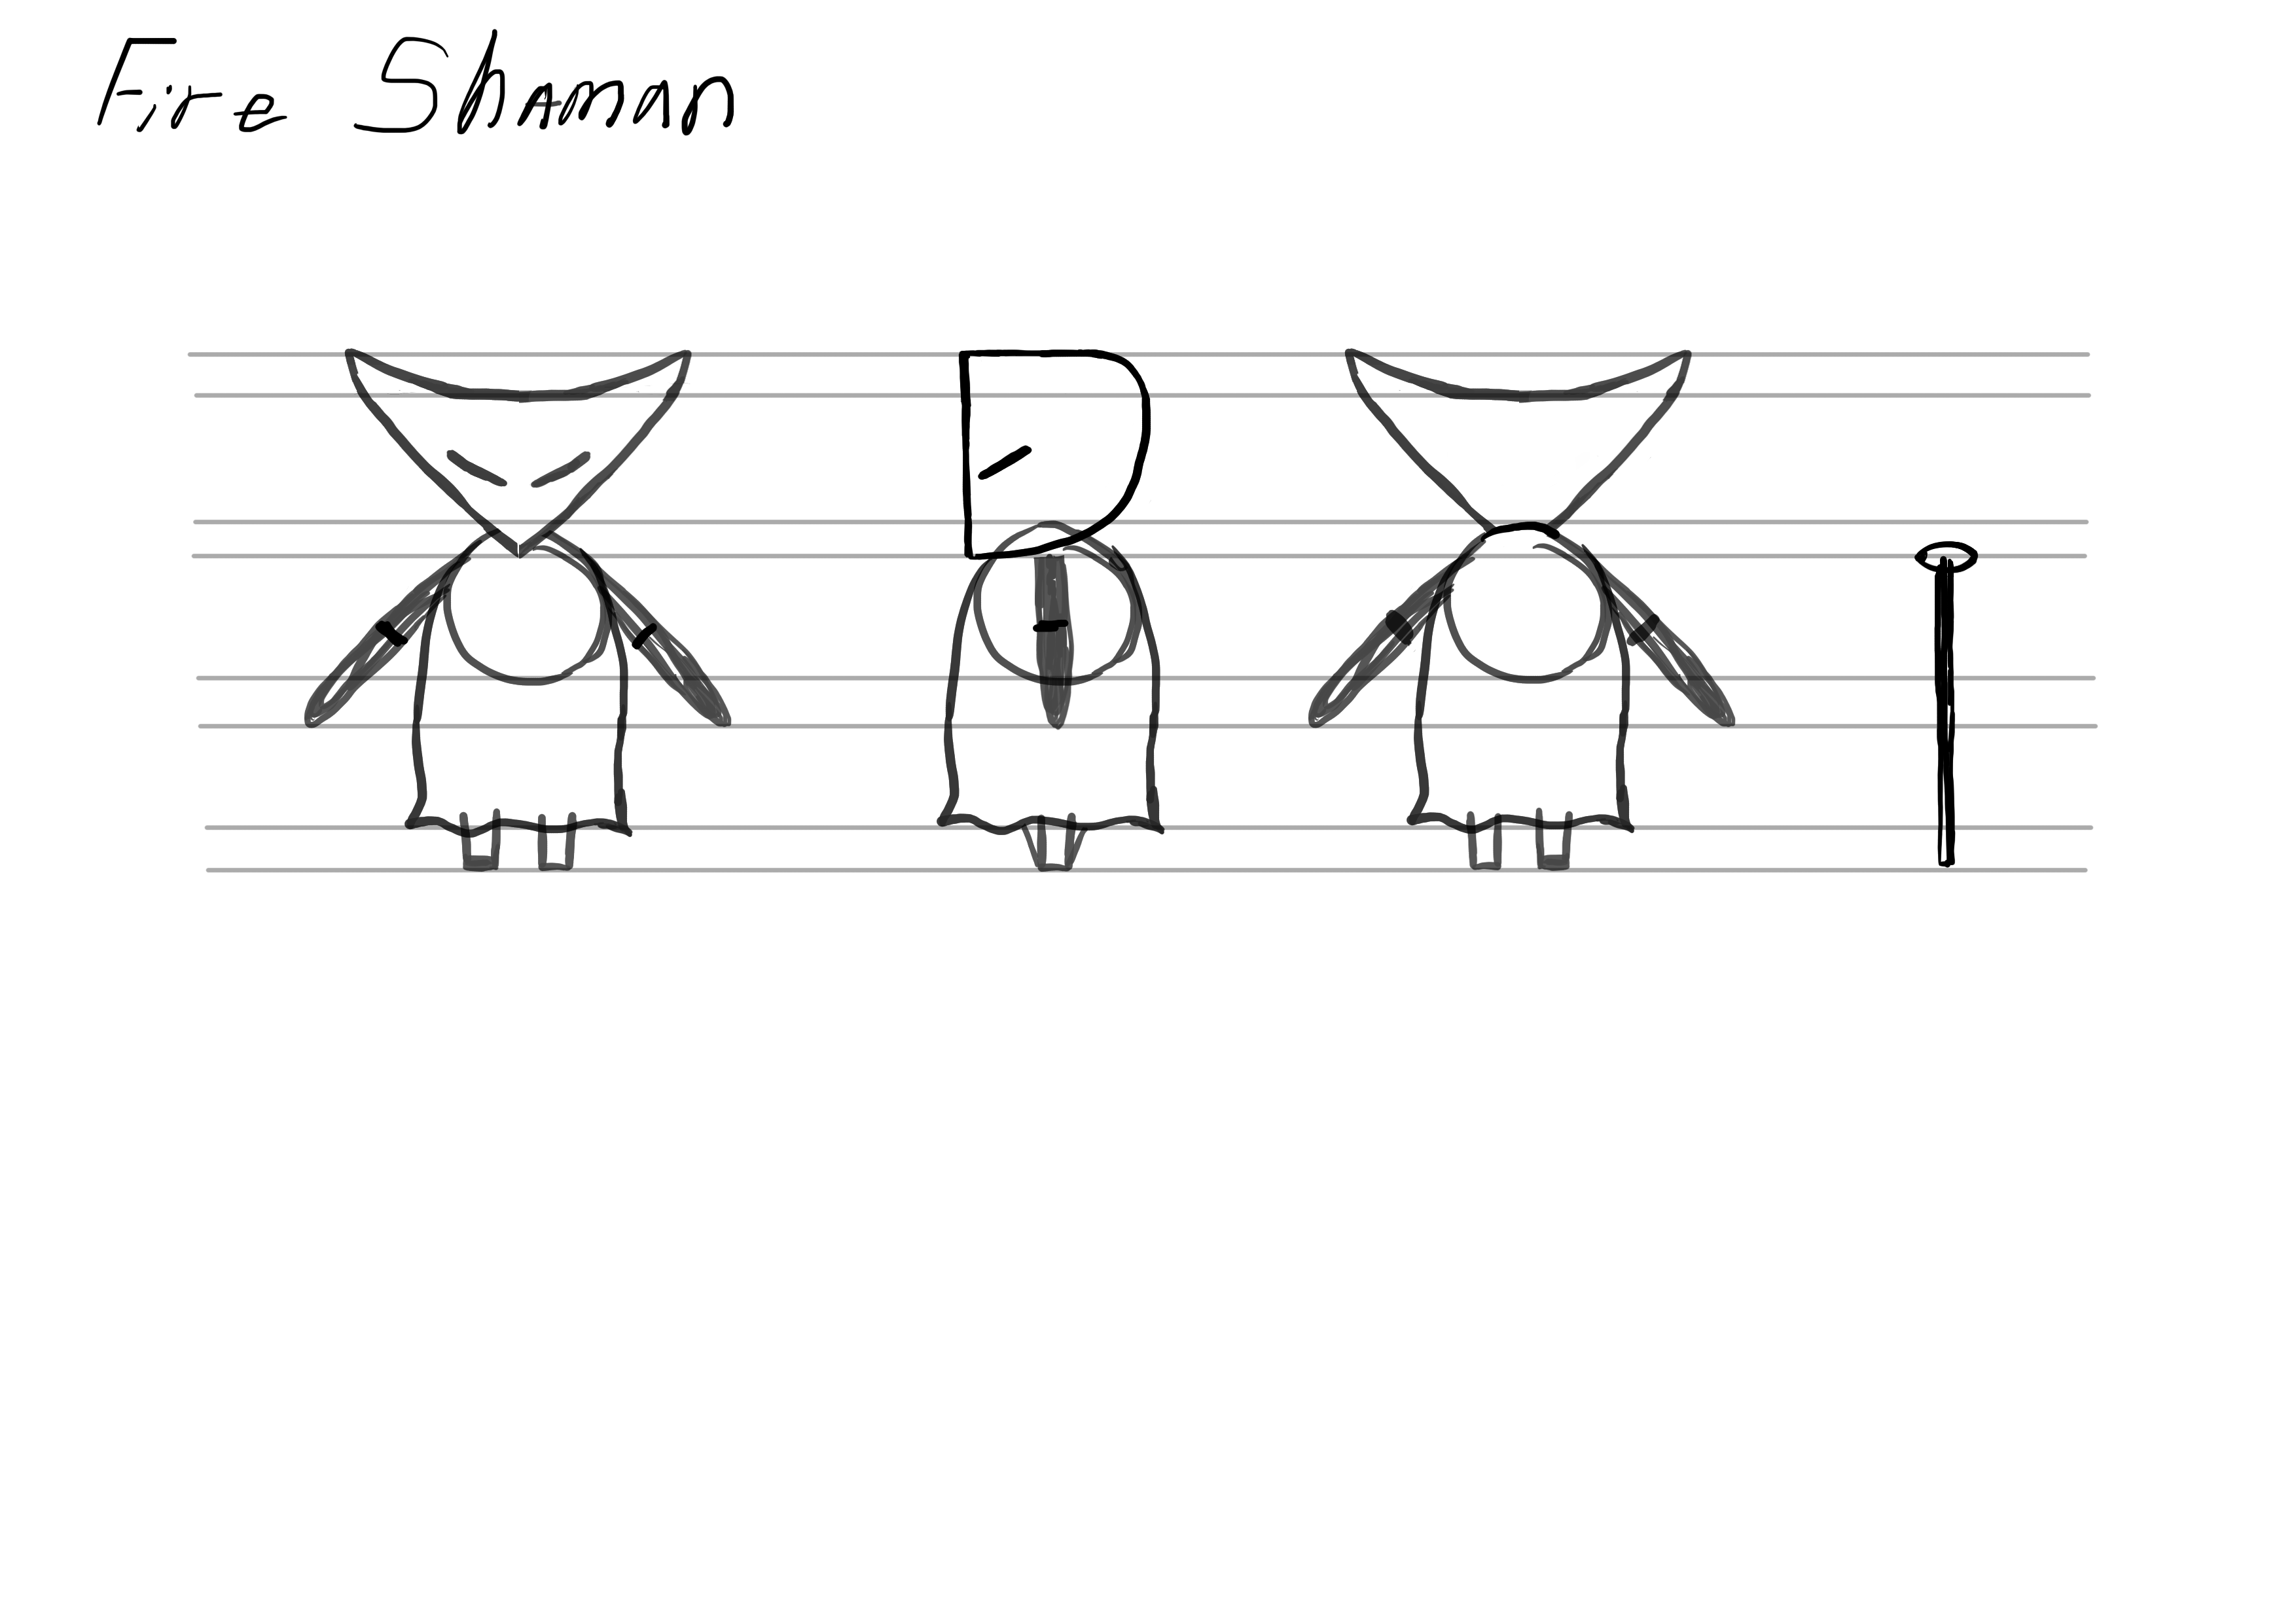 Fire Shaman